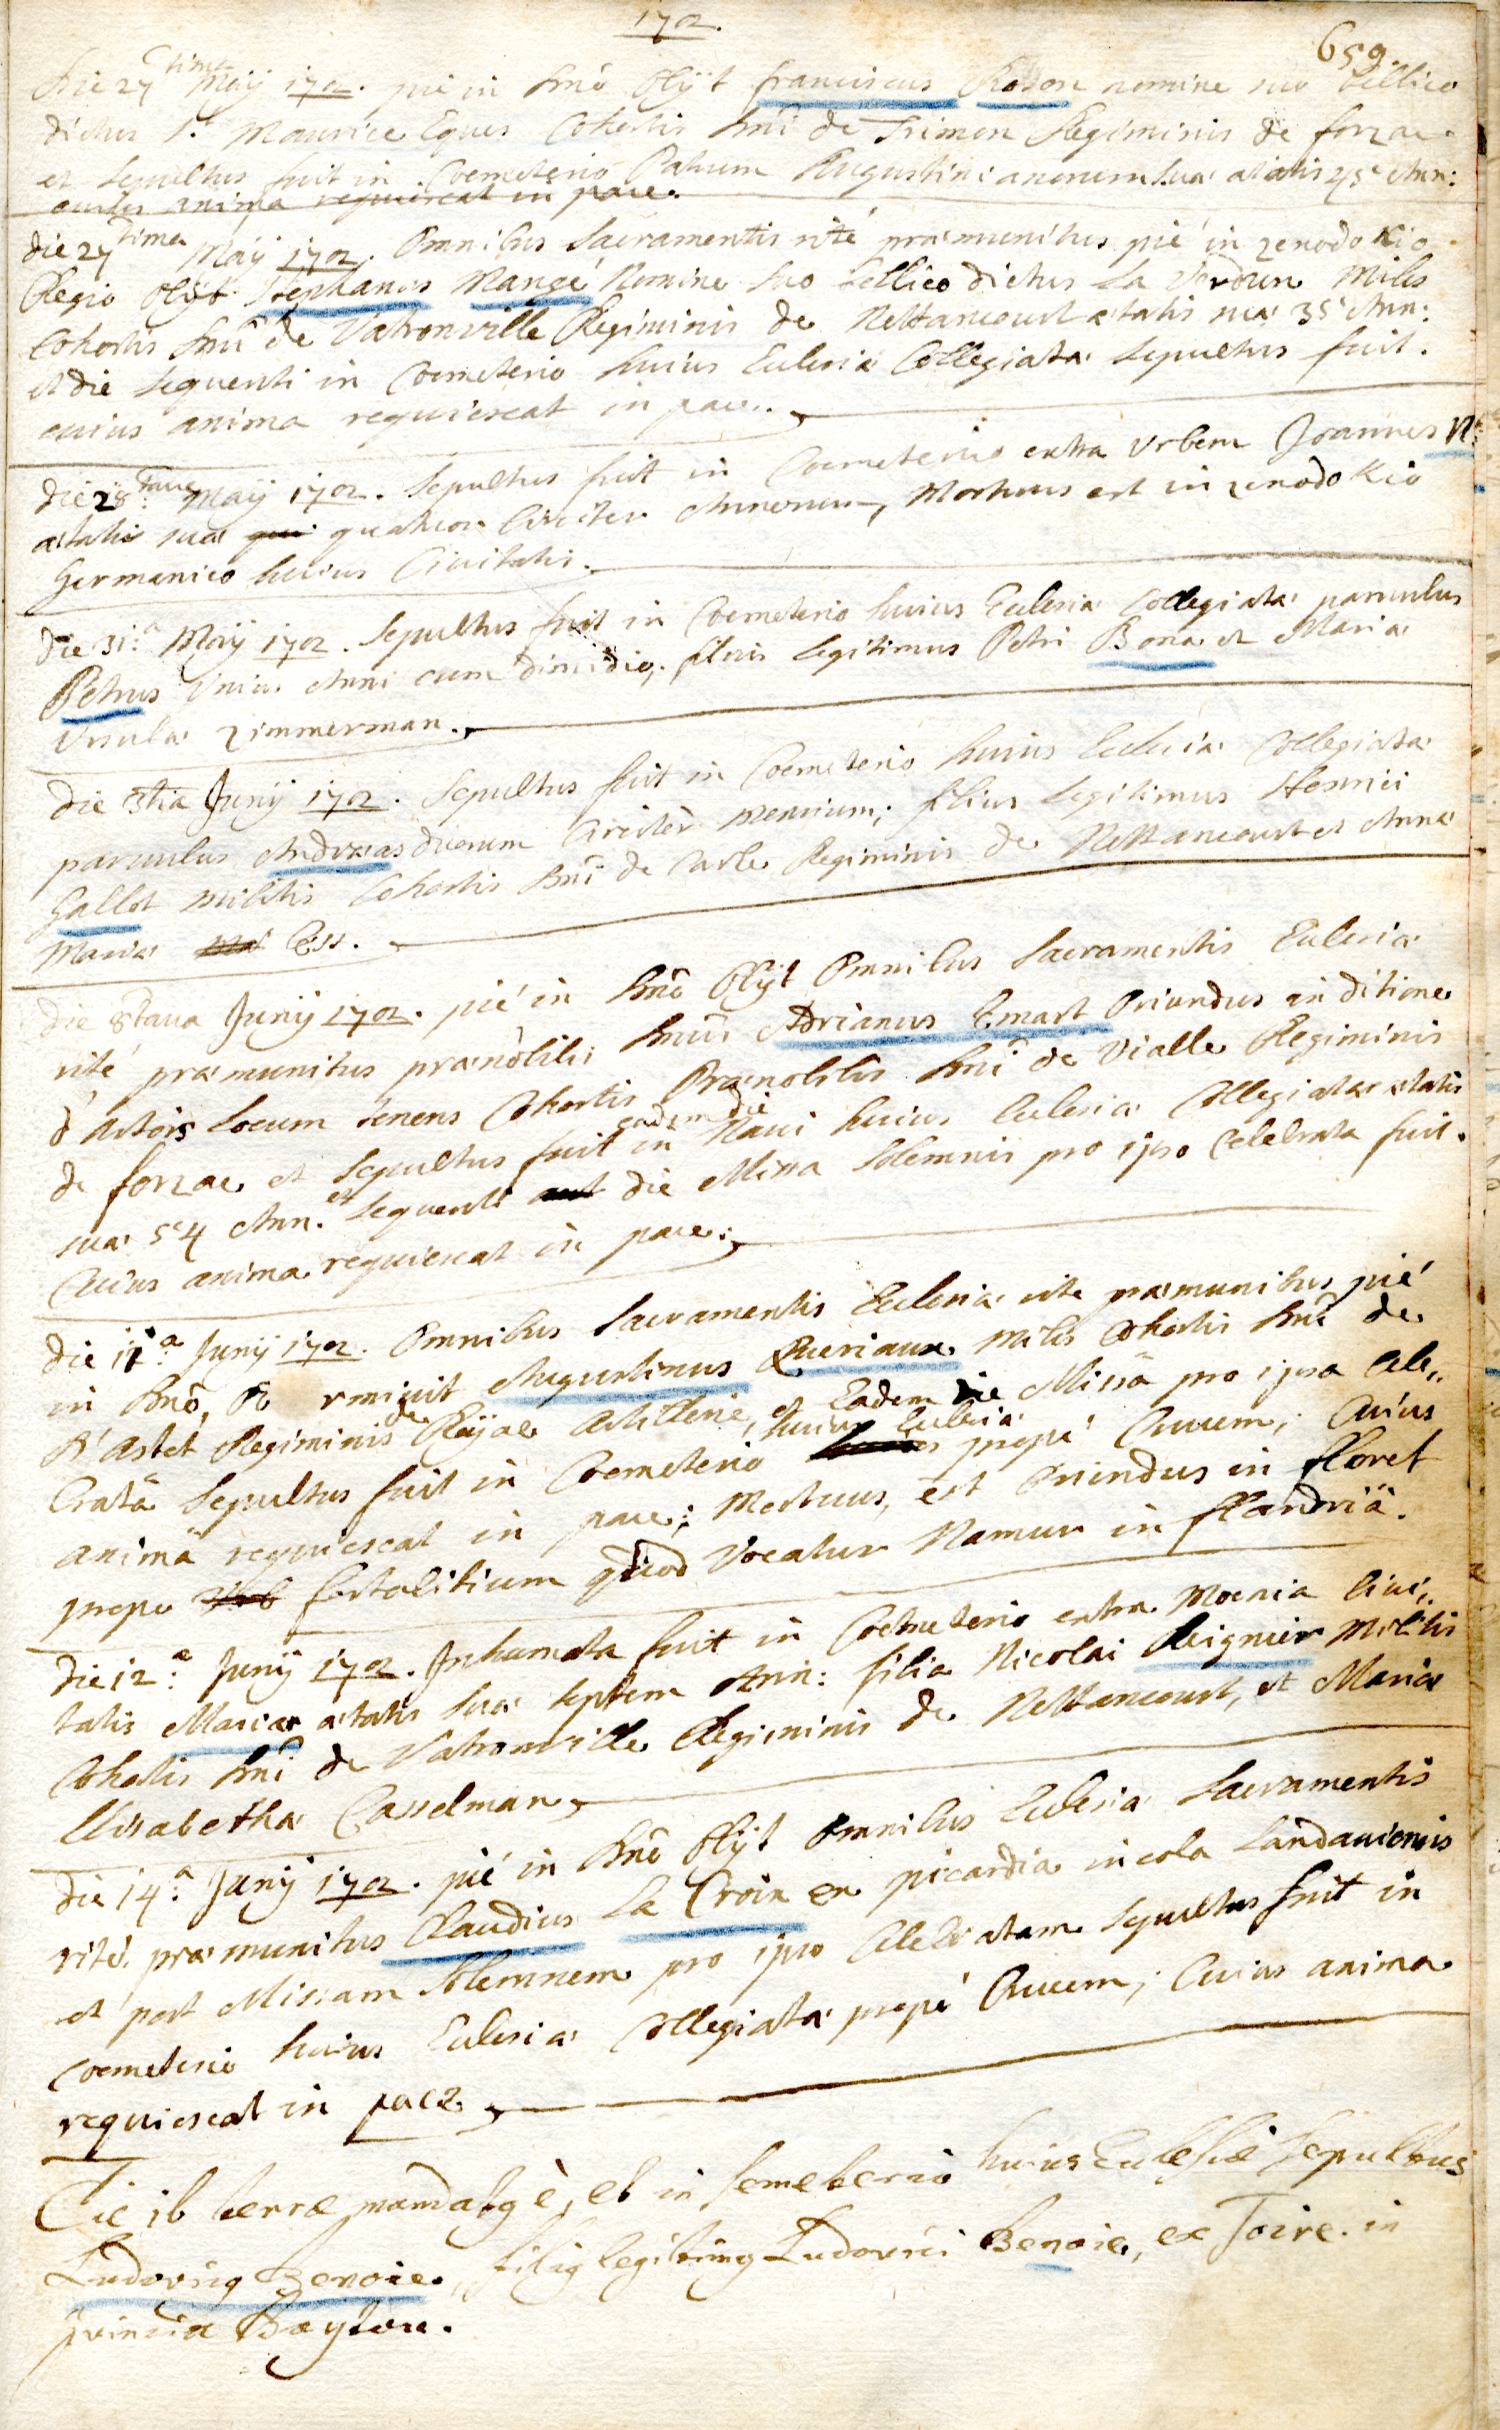 1702.
659.
Die 27tima Maÿ 1702. pié in Dnõ Obÿt franciscus Roson nomine suo bellico
dictus St. Maurice Eques Cohortis Dnĩ de Trimon Regiminis de forzac
et Sepultus fuit in Coemeterio Patrum Augustinianorum sua ætatis 45 Ann:
cuius anima requiescat in pace.
die 27tima Maÿ 1702. Omnibus Sacramentis rité præmunitus pié in zenodokio
Regio Obÿt Stephanus Mangé Nomine suo bellico dictus La Verdun Miles
Cohortis Dnĩ de Vatronville Regiminis de Nettancourt ætatis suæ 35 Ann:
et die sequenti in Coemeterio huius Eclesiæ Collegiatæ Sepultus fuit.
cuius anima requiescat in pace.
die 28tava Maÿ 1702. Sepultus fuit in Coemeterio extra Urbem Joannes N:
ætatis suæ quatuor Circiter Annorum, Mortuus est in zenodokio
Germanico huius Civitatis.
die 31.a Maÿ 1702. Sepultus fuit in Coemeterio huius Eclesiæ Collegiatæ parvulus
Petrus Unius Anni cum dimidio, filius Legitimus Petri Bona et Mariæ
Ursulæ Zimmerman.
die 3tia Junÿ 1702. Sepultus fuit in Coemeterio huius Eclesiæ Collegiatæ
parvulus Andreas duorum Circitèr Mensium; filius Legitimus Henrici
Gallot militis Cohortis Dnĩ de Carle Regiminis de Nettancourt et Annæ
Mariæ Ess.
die 8tava Junÿ 1702. pié in Dnõ Obÿt Omnibus Sacramentis Eclesiæ
rité præmunitus prænobilis Dnũs Adrianus Emart Oriundus in ditione
d'Artois Locum tenens Cohortis Prænobilis Dnĩ de Vialle Regiminis
de forzac et Sepultus fuit eadem die in Navi huius Eclesiæ Collegiatæ ætatis
suæ 54 Ann. et sequenti die Missa Solemnis pro ipso Celebrata fuit.
Cuius anima requiescat in pace.
die 11.a Junÿ 1702. Omnibus Sacramentis Eclesiæ rite præmunitus pié
in Dnõ, Ob rmivit Augustinus Queriaux Miles Cohortis Dnĩ de
D'Astet Regiminis de Royae Artillerie, et Eadem die Missâ pro ipsa Cele,,
Cratâ Sepultus fuit in Coemeterio huius Eclesiæ propé Crucem; Cuius
anima requiescat in pace; Mortuus, est Oriundus in Floret
prope fortalitium quod Vocatur Namur in flandriâ.
die 12.a Junÿ 1702. Inhumata fuit in Coemeterio extra Moenia Civi,,
tatis Maria ætatis suæ septem Ann: filia Nicolai Reignier Militis
Cohortis Dnĩ de Vatronville Regiminis de Nettancourt, et Mariæ
Elisabethæ Casselman
die 14.a Junÿ 1702. pié in Dnõ Obÿt Omnibus Eclesiæ Sacramentis
rité præmunitus Claudius La Croix ex picardia incola Landaviensis
et post Missam Solemnem pro ipso Celebratam Sepultus fuit in
Coemeterio huius Eclesiæ Collegiatæ propé Crucem; Cuius anima
requiescat in pace
Die 16 terræ mandatg è, et in semeterio huius Eclesiæ sepultus
Ludovicg Benoie, filig legitimg Ludovici Benoie, ex Toire in
pvincia Baylon.